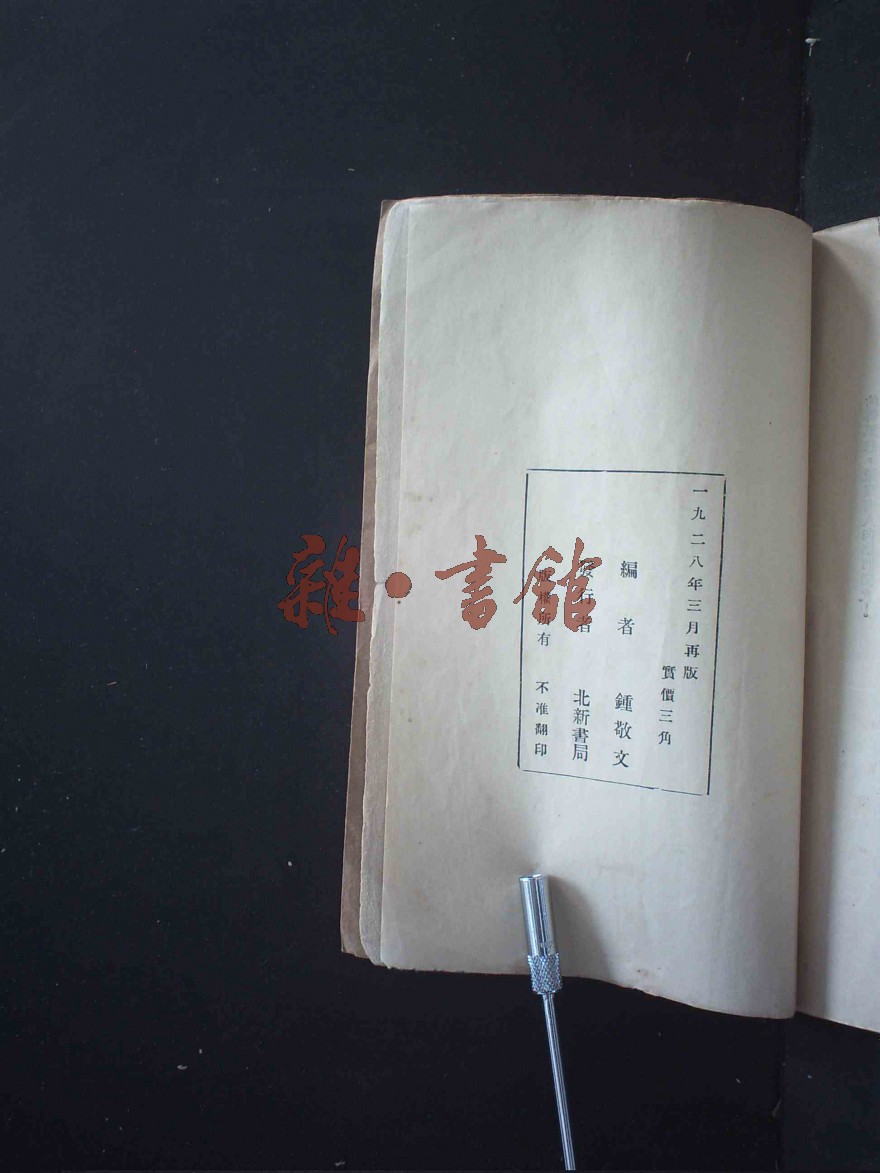 一九二八年三月再版
實價三角
編者 鍾敬文
發行者 北新書局
版權所有 不准翻印
雜·書館